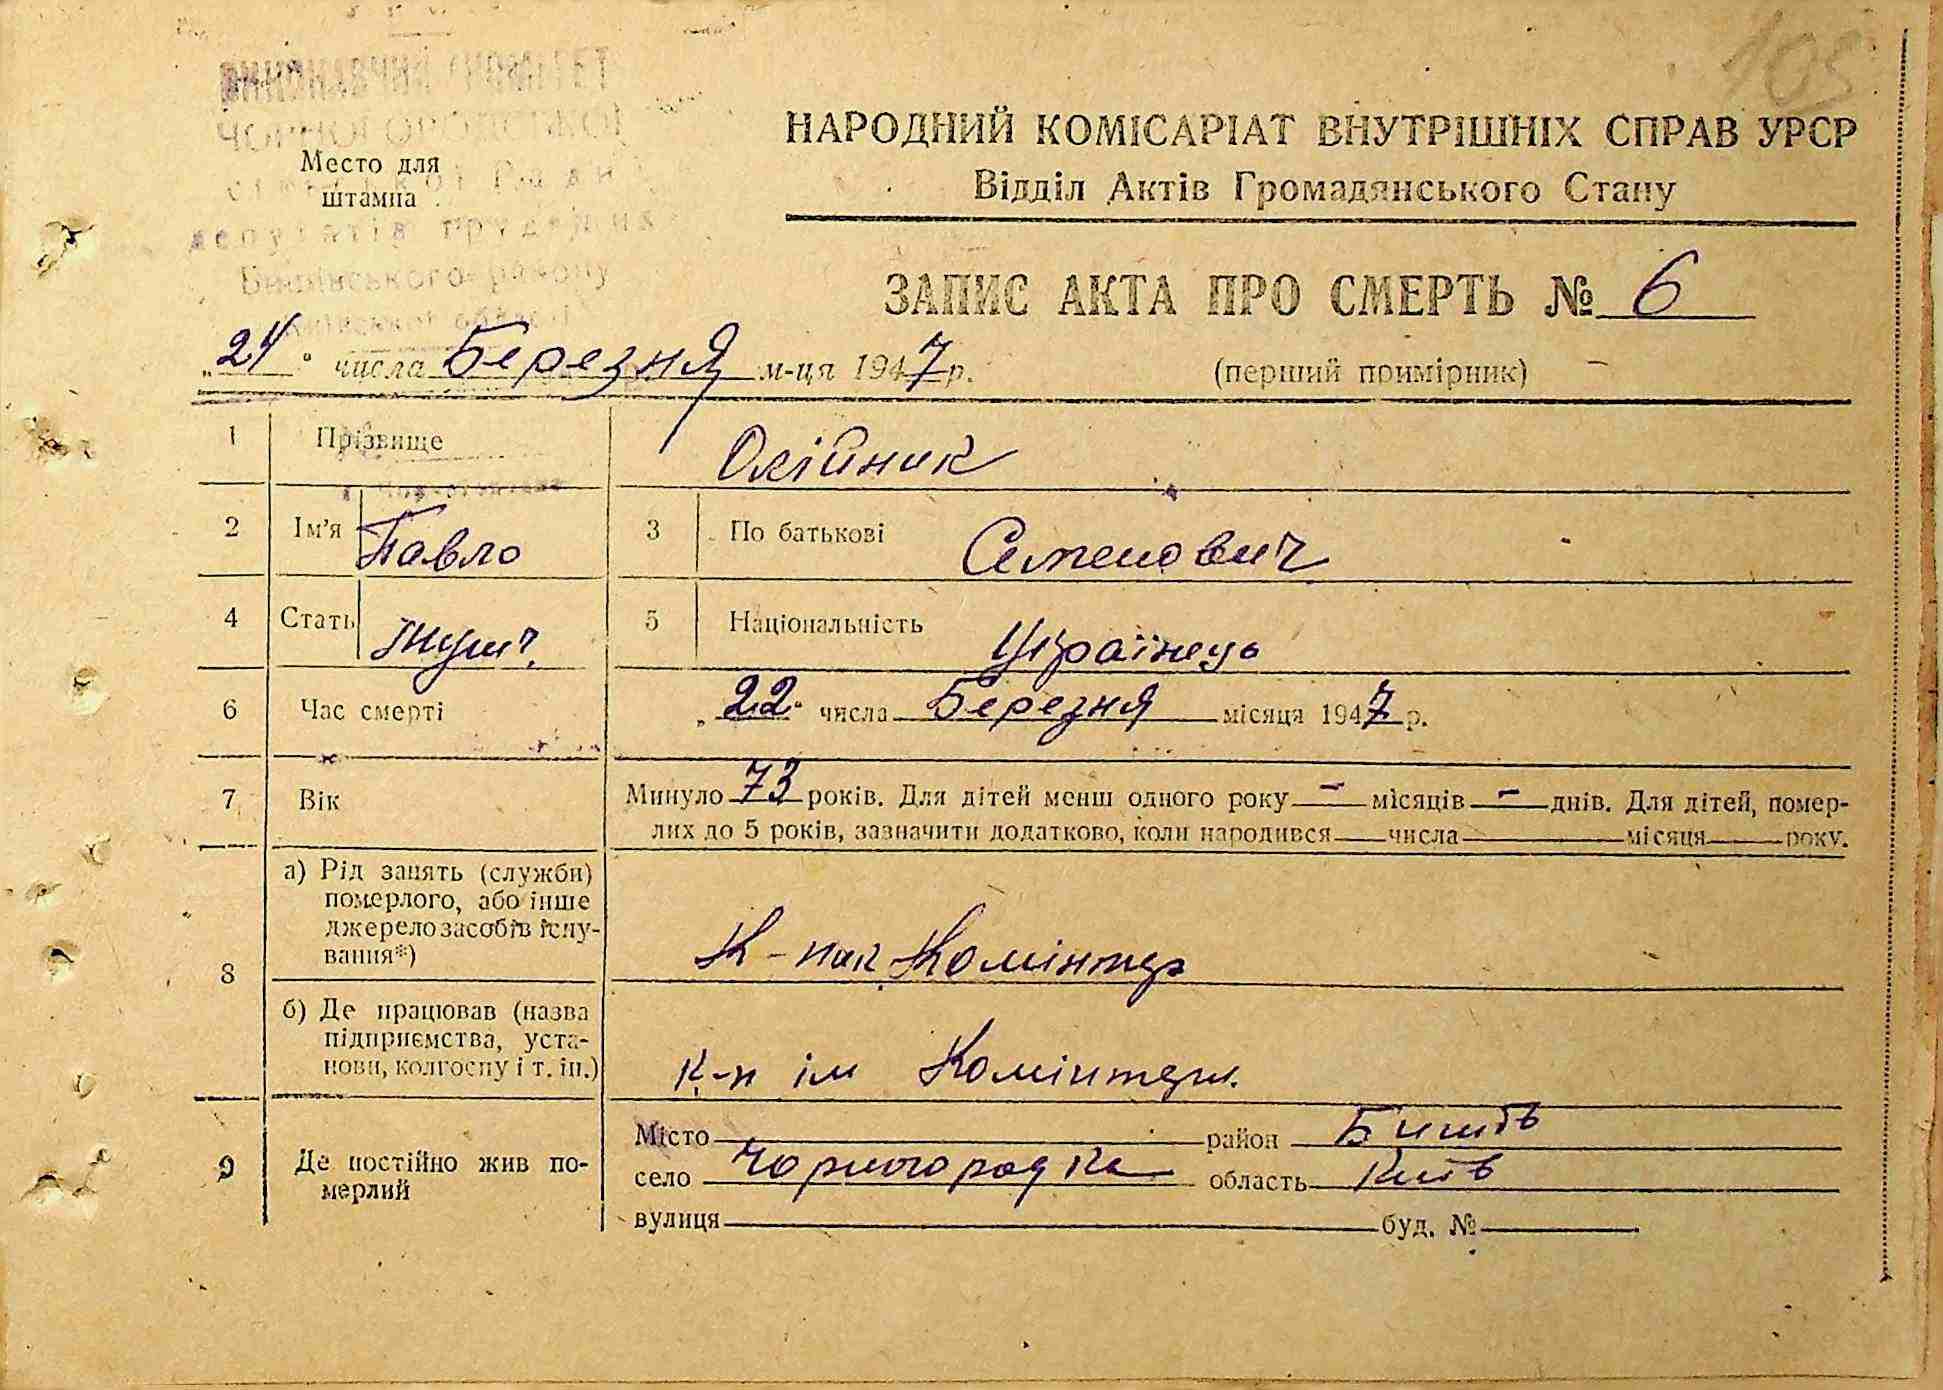 105
ВИКОНАВЧИЙ КОМІТЕТ
ЧОРНОГОРОДСЬКОЇ
сільської Ради
депутатів трудящих
Бишівського району
Київської області
Место для
штампа
НАРОДНИЙ КОМІСАРІАТ ВНУТРІШНІХ СПРАВ УРСР
Відділ Актів Громадянського Стану
ЗАПИС АКТА ПРО СМЕРТЬ № 6
„24" числа Березня м-ця 1947 р.
(перший примірник)
1 Прізвище Олійник
2 Ім'я Павло 3 По батькові Семенович
4 Стать Муж 5 Національність Українець
6 Час смерті „22" числа Березня місяця 1947 р.
7 Вік Минуло 73 років. Для дітей менш одного року - місяців - днів. Для дітей, помер-
лих до 5 років, зазначити додатково, коли народився числа місяця року.
8 а) Рід занять (служби)
померлого, або інше
джерело засобів існу-
вання*)
К-ник Комінтер
б) Де працював (назва
підприємства, уста-
нови, колгоспу і т. ін.)
к-п ім Комінтерн.
9 Де постійно жив по-
мерлий
Місто район Бишів
село Чорногородка область Київ
вулиця буд. №